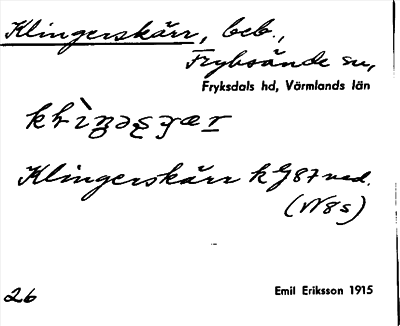 Klingerskärr, beb.,
Fryksände sn,
Fryksdals hd, Värmlands län
Klingerskärr k G 87 ned.
(N 8 s)
26
Emil Eriksson 1915